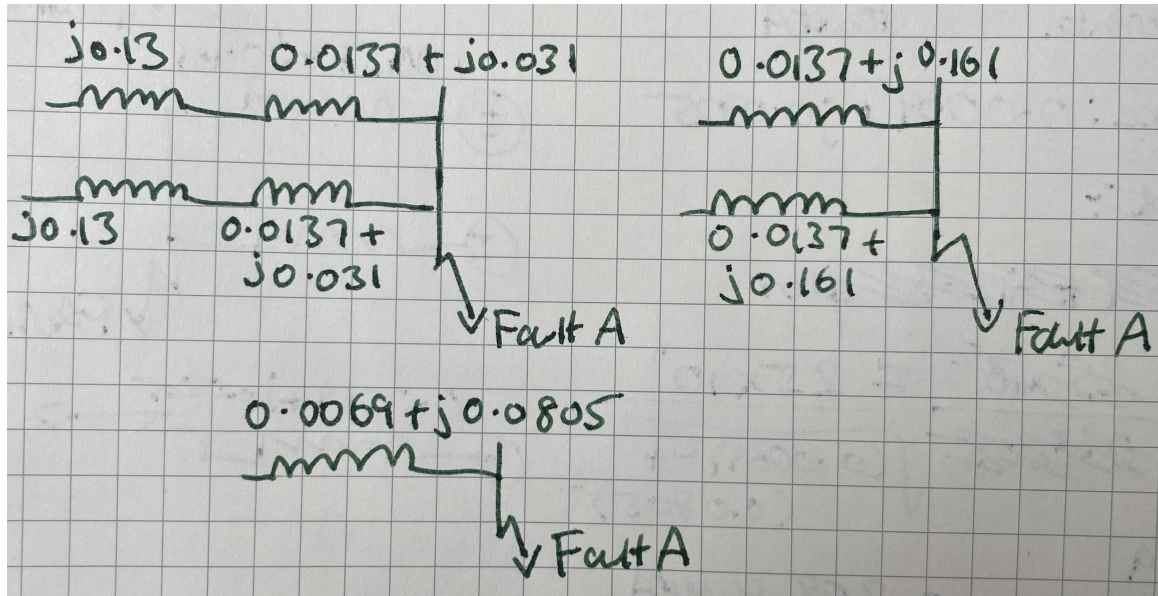 j0.13
0.0137 + j0.031
j0.13
0.0137 +
j0.031
Fault A
0.0137 + j0.161
0.0137 +
j0.161
Fault A
0.0069 + j0.0805
Fault A